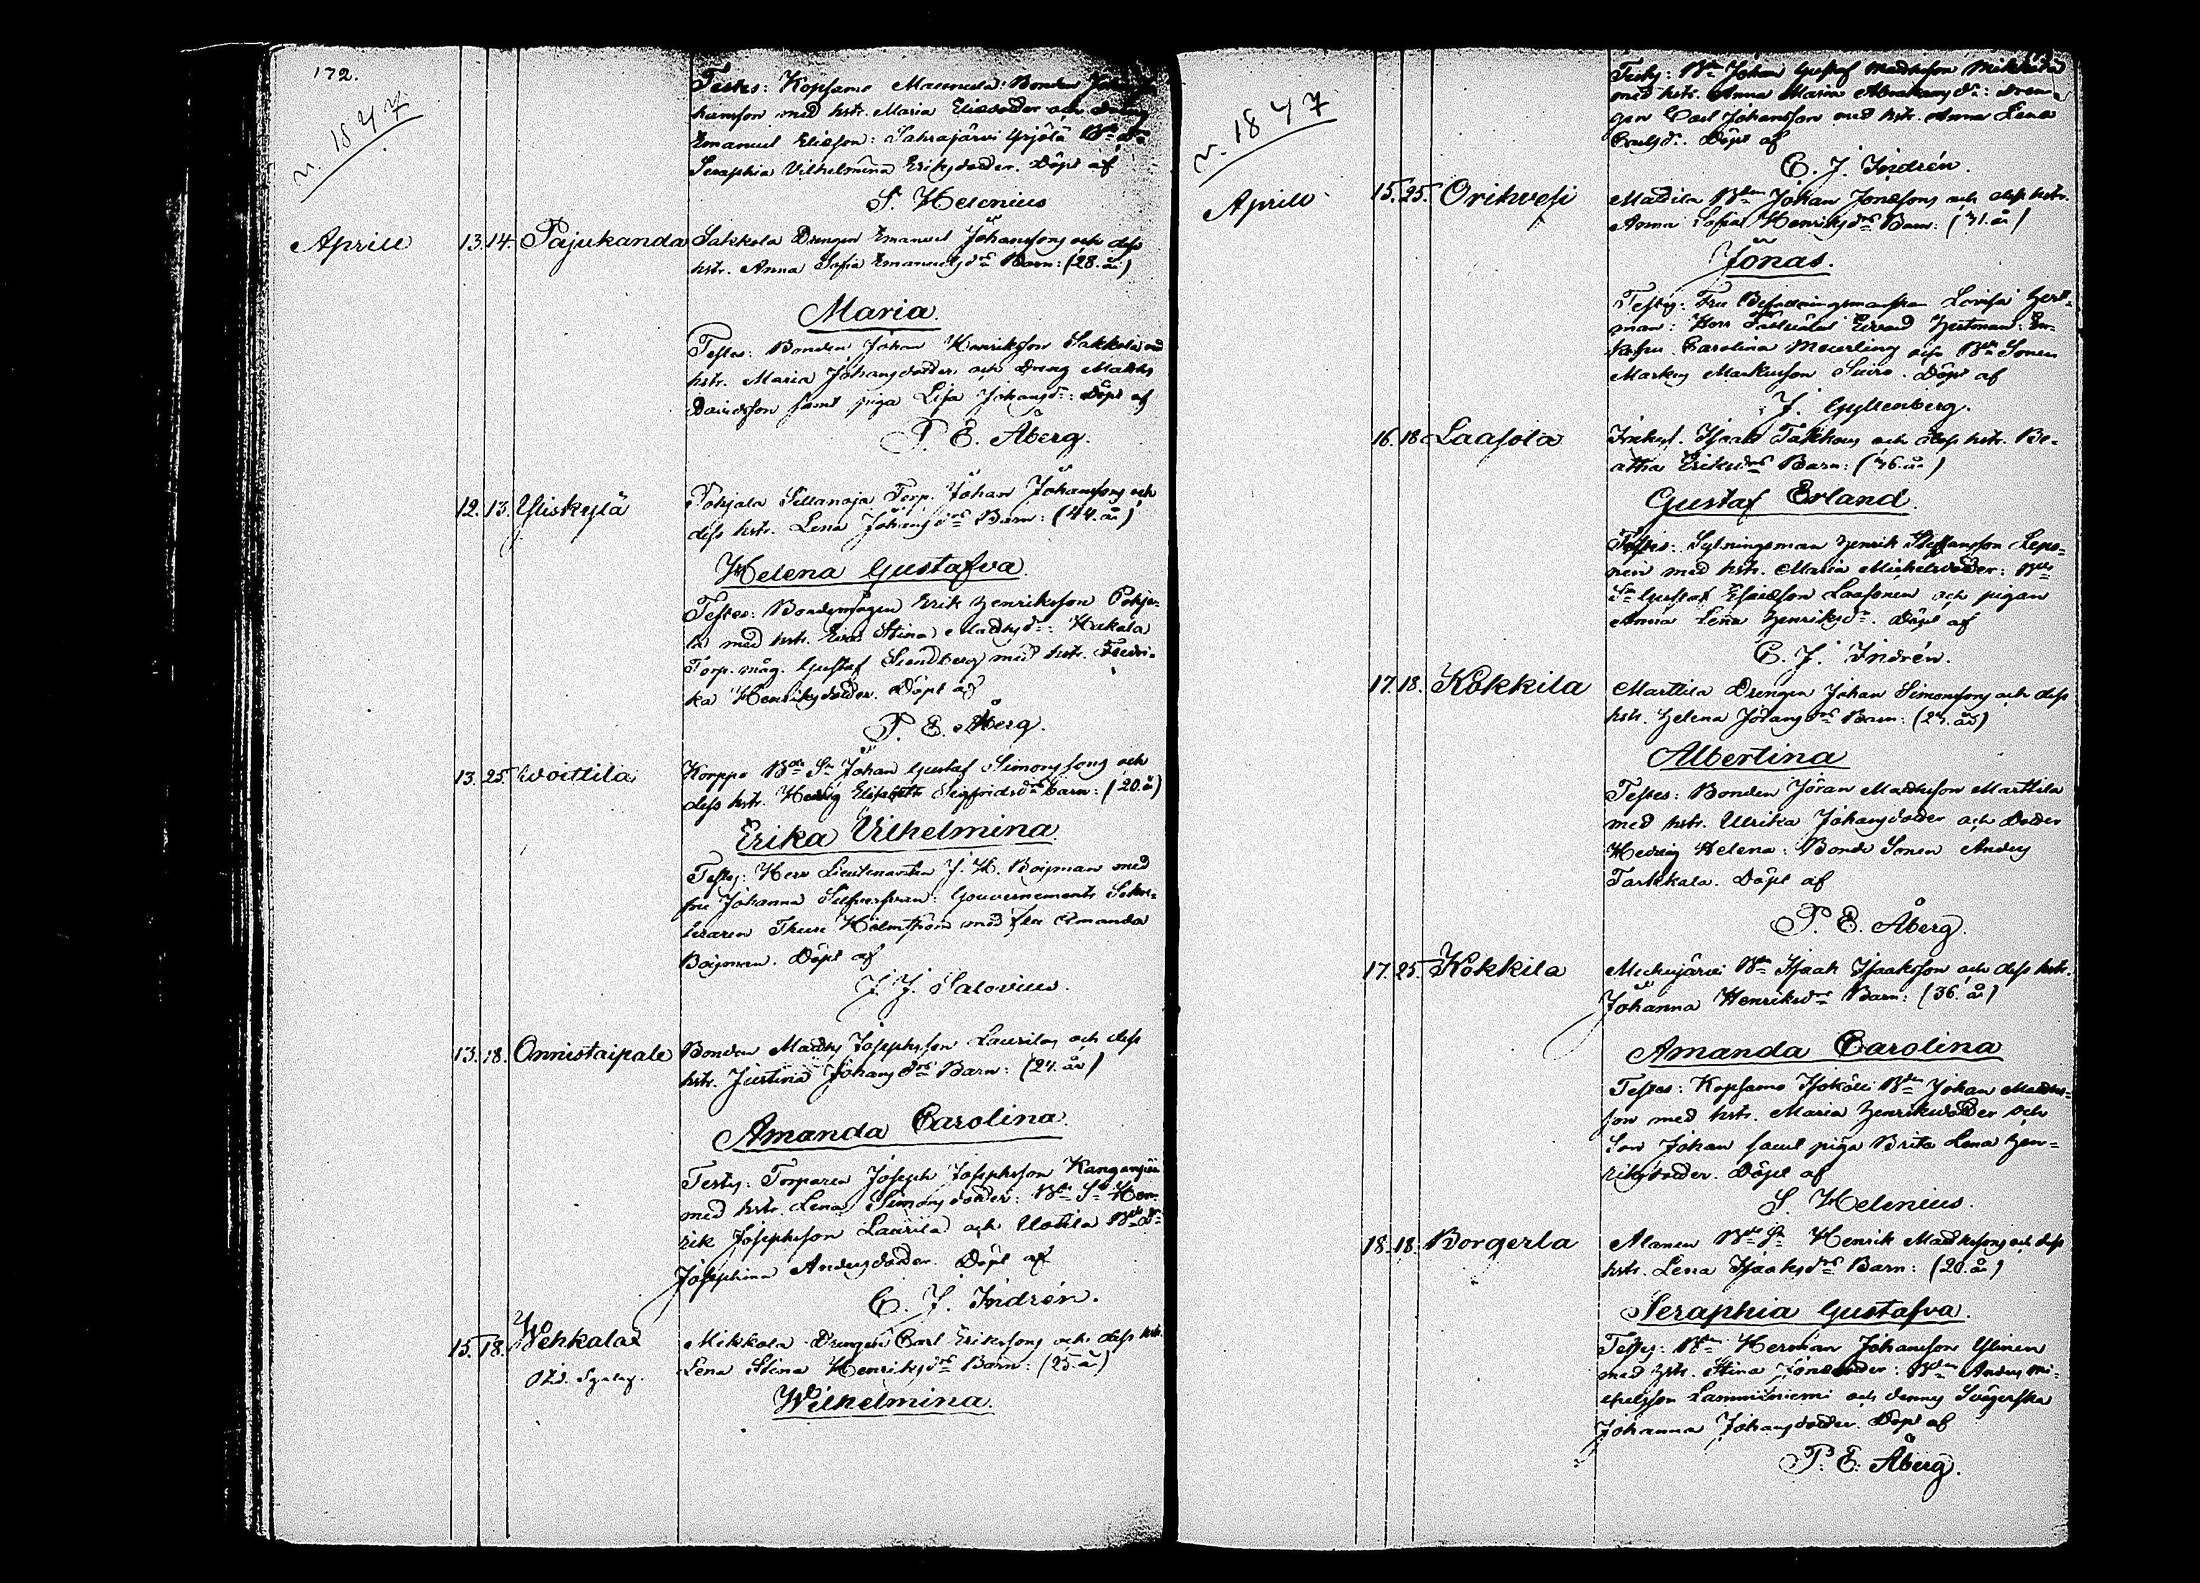 172.
v. 1847
Testes: Kopsamo Mannila: Bonden
hansson med hstr. Maria Eliædotter och dreng
Emanuel Eliæson: Sahrajärvi Yrjölä
Seraphia Vilhelmina Eriksdotter. Döpt af
S. Helenius
Aprill 13. 14. Pajukanda Sakkola Drengen Emanuel Johanssons och dess
hstr. Anna Sofia Emanuelsdrs Barn: (28. år)
Maria.
Testes: Bonden Johan Henriksson Sakkola med
hstr. Maria Johansdotter och Dreng Matths
Davidsson samt piga Lisa Johansdr: Döpt af
P. E. Åberg.
12. 13. Yliskylä Pohjala Sillanoja Torp. Johan Johanssons och
dess hstr. Lena Johansdrs Barn: (44. år)
Helena Gustafva.
Testes: Bondemågen Erik Henriksson Pohja-
la med hstr. Eva Stina Mattsdr: Hukala
Torp. måg. Gustaf Sundberg med hstr. Fredri-
ka Henriksdotter. Döpt af
P. E. Åberg.
13. 25. Woittila Korppo Bde Sn Johan Gustaf Simonssons och
dess hstr. Hedvig Elisabeth Sigfridsdrs Barn: (20. år)
Erika Vilhelmina
Testes: Herr Lieutenanten J. H. Boijman med
fru Johanna Silfversvan: Gouvernements Sekre-
teraren Thure Holmström med fru Amanda
Boijman. Döpt af
J. J. Salovius.
13. 18. Onnistaipale Bonden Matths Josephsson Laurilas och dess
hstr. Justina Johansdrs Barn: (24. år)
Amanda Carolina.
Testes: Torparen Joseph Josephsson
med hstr. Lena Simonsdotter: Bde Sn Hen-
rik Josephsson Laurila och Uotila Bde Dr
Josephina Andersdotter. Döpt af
C. J. Indrén.
15. 18. Wehkalax Mikkola Drengen Carl Erikssons och dess hstr.
Lena Stina Henriksdrs Barn: (25. år)
Wilhelmina.
v. 1847
Testes: Bdn Johan Gustaf Mattsson Mikkola
med hstr. Anna Maria Abrahamsdr: Dren-
gen Carl Johansson med hstr. Anna Lena
Döpt af
C. J. Indrén.
Aprill 15. 25. Orihvesi Mattila Bdn Johan Jonæssons och dess hstr.
Anna Sofia Henriksdrs Barn: (31. år)
Jonas.
Testes: Fru Befallningsmanskan Lovisa Hert-
man: Herr Edvard Hertman: En-
kefru Carolina Meurling och Bde Sonen
Markus Markusson Suiro. Döpt af
J. Gyllenberg.
16. 18. Laasola Inhys. Isaak Takkous och dess hstr. Be-
atha Eriksdrs Barn: (36. år)
Gustaf Erland.
Testes: Sytningsman Henrik Staffansson Lepo-
nen med hstr. Maria Michelsdotter: Bde
Sn Gustaf Esaiæson Laasonen och pigan
Anna Lena Henriksdr. Döpt af
C. J. Indrén.
17. 18. Kokkila Marttila Drengen Johan Simonssons och dess
hstr. Helena Göransdrs Barn: (24. år)
Albertina
Testes: Bonden Jöran Mattsson Marttila
med hstr. Ulrika Johansdotter och Dotter
Hedvig Helena: Bonde Sonen Anders
Tarkkala. Döpt af
P. E. Åberg.
17. 25. Kokkila Mickujärvi Bdn Isaak Isaakssons och dess hstr.
Johanna Henriksdrs Barn: (36. år)
Amanda Carolina
Testes: Kopsamo Isokölli Bdn Johan Matts-
son med hstr. Maria Henriksdotter och
Son Johan samt piga Brita Lena Hen-
riksdotter. Döpt af
S. Helenius.
18. 18. Borgerla Alanen Bde Sn Henrik Mattssons och dess
hstr. Lena Isaaksdrs Barn: (20. år)
Seraphia Gustafva.
Testes: Bdn Herman Johansson Ylinen
med hstr. Stina Jonædotter: Bdn Anders Mi-
chelsson Lamminiemi och dennes Svägerska
Johanna Johansdotter. Döpt af
P. E. Åberg.